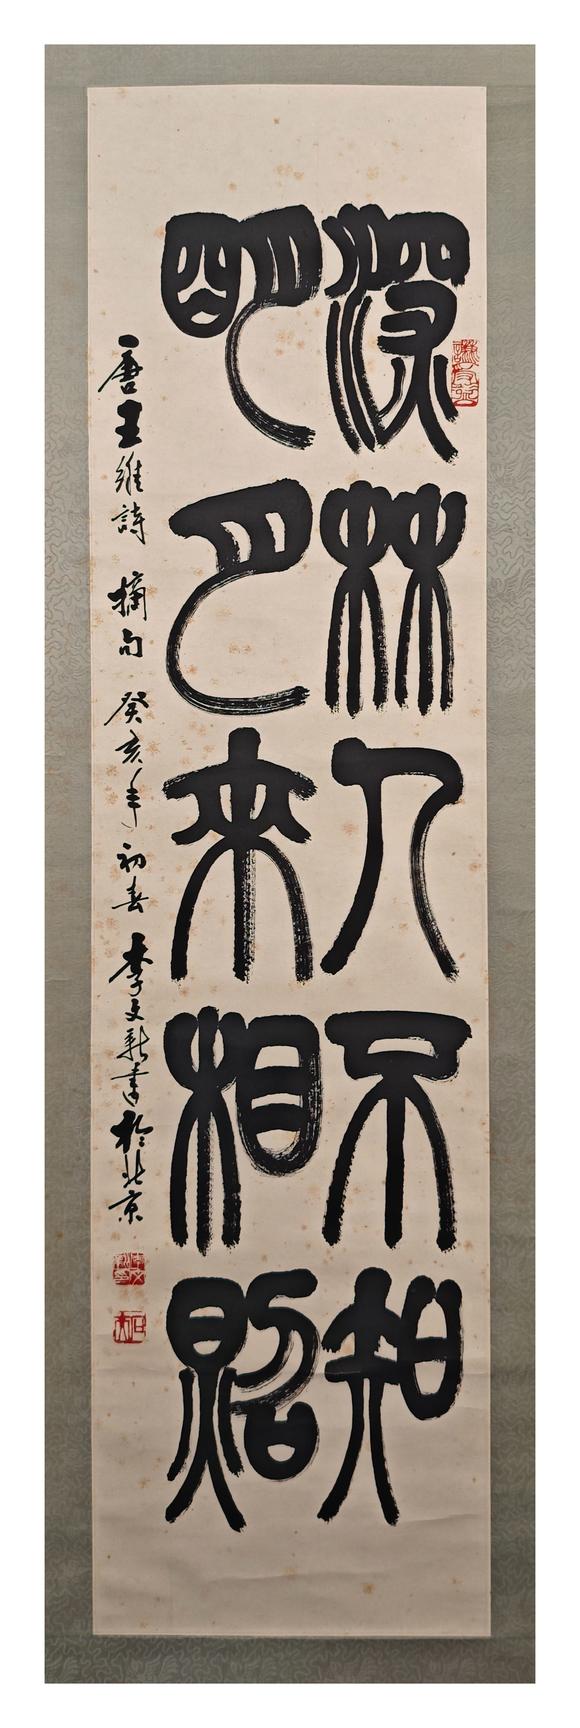 深林人不知
明月来相照
唐王維詩摘句癸亥年初春李文新書於北京